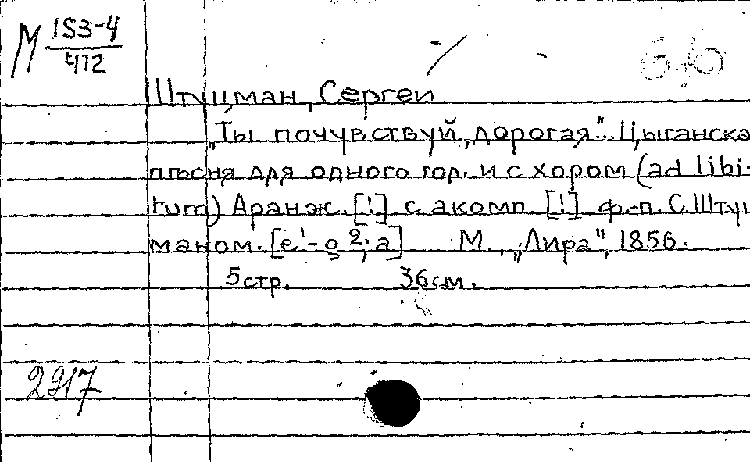 М 153-4
412
Штуцман, Сергей
„Ты почувствуй, дорогая". Цыганска
пѣсня для одного гол. и с хором (ad libi-
tum) Аранж. [!] с акомп. [!] ф.-п. С. Шту
маном. [e¹-g²; a] М., „Лира", 1856.
5 стр. 36 см.
2917